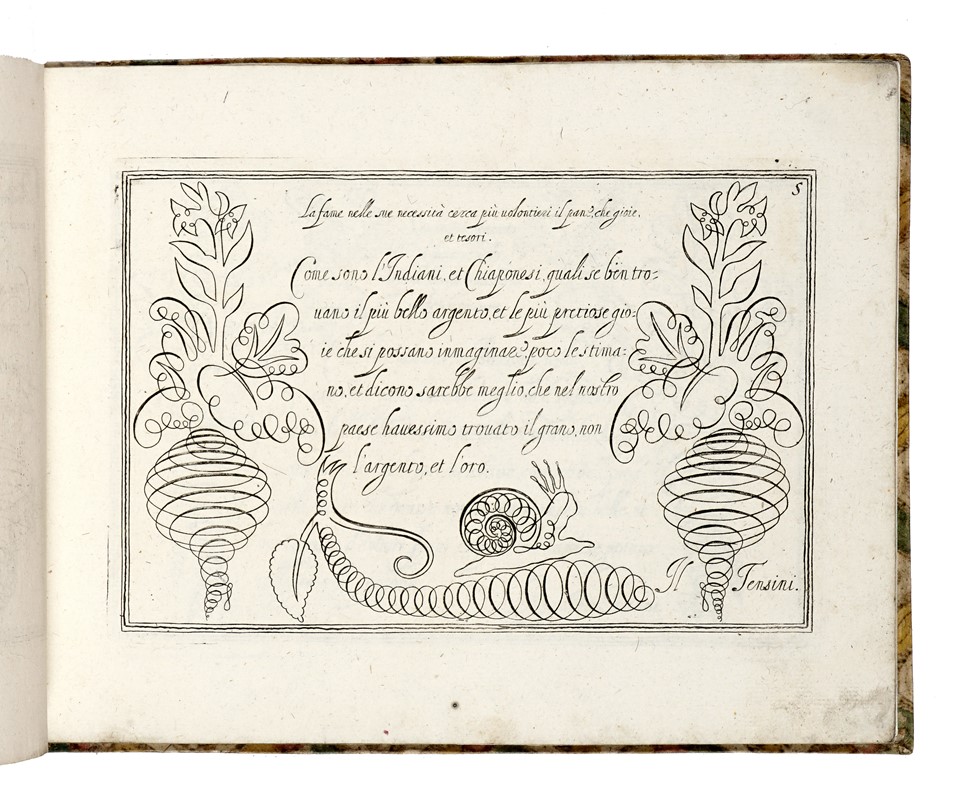 5
La fame nelle sue necessità cerca più uolontieri il pane, che gioie,
et tesori.
Come sono l'Indiani, et Chiaponesi, quali se bèn tro=
uano il più bello argento, et le più pretiose gio=
ie che si possano inmaginare, poco le stima=
no, et dicono sarebbe meglio, che nel nostro
paese hauessimo trouato il grano, non
l'argento, et l'oro.
Il Tensini.